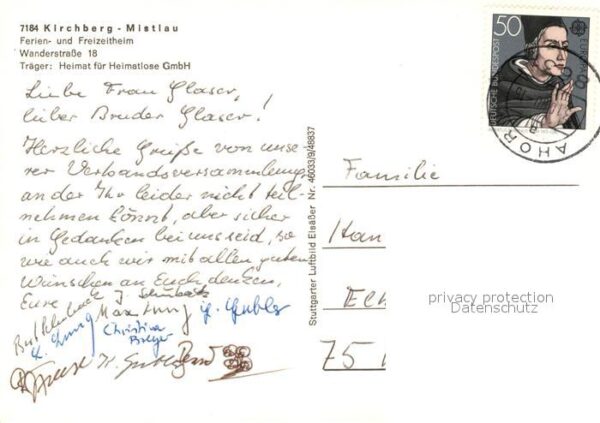 7184 Kirchberg - Mistlau
Ferien- und Freizeitheim
Wanderstraße 18
Träger: Heimat für Heimatlose GmbH
Liebe Frau Glaser,
lieber Bruder Glaser!
Herzliche Grüße von unse-
rer Verbandsversammlung,
an der Ihr leider nicht teil-
nehmen könnt, aber sicher
in Gedanken bei uns seid, so
wie auch wir mit allen guten
Wünschen an Euch denken,
Eure
Max Jung
Christina
Stuttgarter Luftbild Elsäßer Nr. 46033/9/48837
50
DEUTSCHE BUNDESPOST
EUROPA
AHOR
Familie
Han
Ech
75
privacy protection
Datenschutz